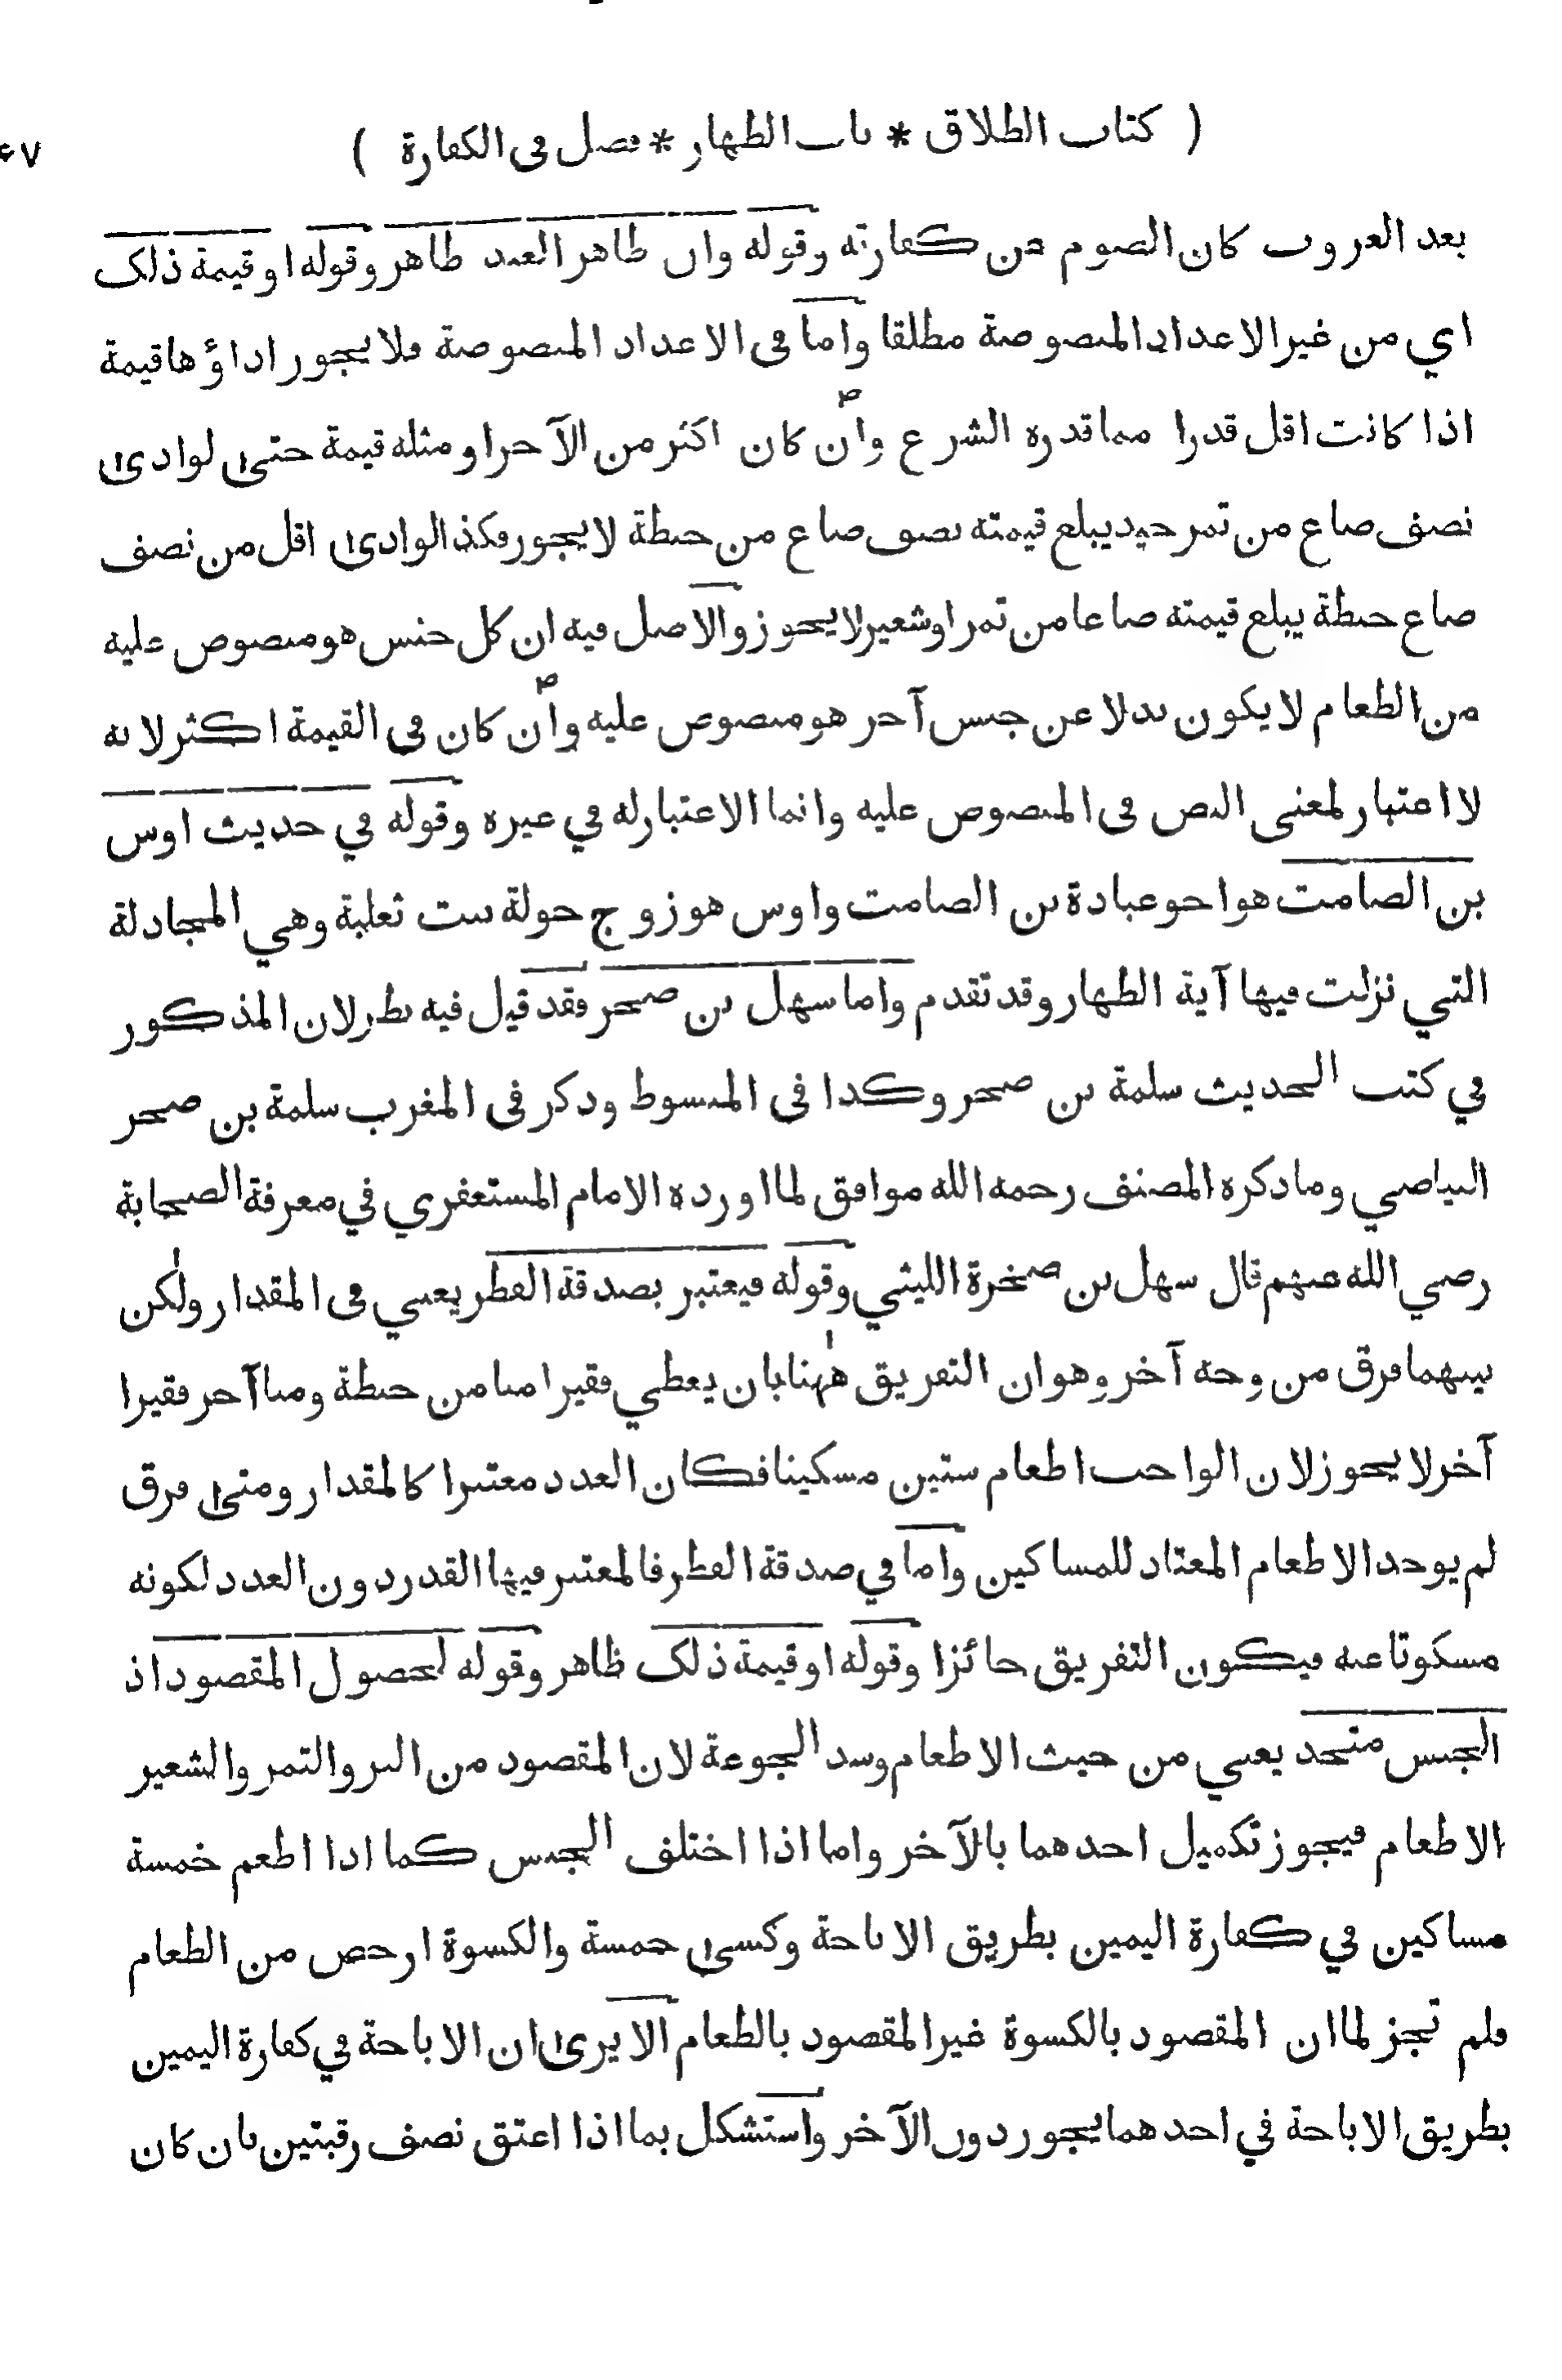 ( كتاب الطلاق * باب الظهار * فصل فى الكفارة )
۶۷
بعد الغروب كان الصوم من كفارته وقوله وان ظاهر العبد ظاهر وقوله او قيمة ذلك
اي من غير الاعداد المنصوصة مطلقا واما فى الاعداد المنصوصة فلا يجوز اداؤها قيمة
اذا كانت اقل قدرا مما قدره الشرع وان كان اكثر من الآخر او مثله قيمة حتى لو ادى
نصف صاع من تمر جيد يبلغ قيمته نصف صاع من حنطة لا يجوز فكذا لو ادى اقل من نصف
صاع حنطة يبلغ قيمته صاعا من تمر او شعير لا يجوز والاصل فيه ان كل جنس هو منصوص عليه
من الطعام لا يكون بدلا عن جنس آخر هو منصوص عليه وان كان فى القيمة اكثر لانه
لا اعتبار لمعنى النص فى المنصوص عليه وانما الاعتبار له في غيره وقوله في حديث اوس
بن الصامت هو اخو عبادة بن الصامت واوس هو زوج خولة بنت ثعلبة وهي المجادلة
التي نزلت فيها آية الظهار وقد تقدم واما سهل بن صخر فقد قيل فيه نظر لان المذكور
في كتب الحديث سلمة بن صخر وكذا فى المبسوط وذكر فى المغرب سلمة بن صخر
البياضي وما ذكره المصنف رحمه الله موافق لما اورده الامام المستغفري في معرفة الصحابة
رضي الله عنهم قال سهل بن صخرة الليثي وقوله فيعتبر بصدقة الفطر يعني فى المقدار ولكن
بينهما فرق من وجه آخر وهو ان التفريق ههنا بان يعطي فقيرا منا من حنطة ومنا آخر فقيرا
آخر لا يجوز لان الواجب اطعام ستين مسكينا فكان العدد معتبرا كالمقدار ومتى فرق
لم يوجد الاطعام المعتاد للمساكين واما في صدقة الفطر فالمعتبر فيها القدر دون العدد لكونه
مسكوتا عنه فيكون التفريق جائزا وقوله او قيمة ذلك ظاهر وقوله لحصول المقصود اذ
الجنس متحد يعني من حيث الاطعام وسد الجوعة لان المقصود من البر والتمر والشعير
الاطعام فيجوز تكميل احدهما بالآخر واما اذا اختلف الجنس كما اذا اطعم خمسة
مساكين في كفارة اليمين بطريق الاباحة وكسى خمسة والكسوة ارخص من الطعام
فلم تجز لما ان المقصود بالكسوة غير المقصود بالطعام الا يرى ان الاباحة في كفارة اليمين
بطريق الاباحة في احدهما يجوز دون الآخر واستشكل بما اذا اعتق نصف رقبتين بان كان